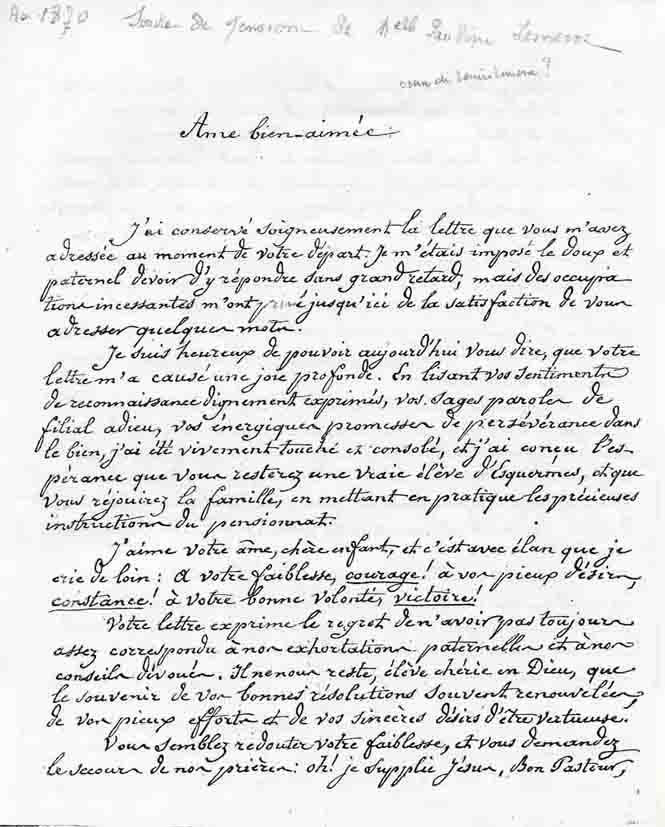 Sortie de pension de Melle Pauline
Ame bien-aimée:
J'ai conservé soigneusement la lettre que vous m'avez
adressée au moment de votre départ. Je m'étais imposé le doux et
paternel devoir d'y répondre sans grand retard, mais des occupa
tions incessantes m'ont privé jusqu'ici de la satisfaction de vous
adresser quelques mots.
Je suis heureux de pouvoir aujourd'hui vous dire, que votre
lettre m'a causé une joie profonde. En lisant vos sentiments
de reconnaissance dignement exprimés, vos sages paroles de
filial adieu, vos énergiques promesses de persévérance dans
le bien, j'ai été vivement touché et consolé, et j'ai conçu l'es-
pérance que vous resterez une vraie élève d'Esquermes, et que
vous réjouirez la famille, en mettant en pratique les précieuses
instructions du pensionnat.
J'aime votre âme, chère enfant, et c'est avec élan que je
crie de loin: à votre faiblesse, courage! à vos pieux désirs,
constance! à votre bonne volonté, victoire!
Votre lettre exprime le regret de n'avoir pas toujours
assez correspondu à nos exhortations paternelles et à nos
conseils dévoués. Il ne nous reste, élève chérie en Dieu, que
le souvenir de vos bonnes résolutions souvent renouvelées,
de vos pieux efforts et de vos sincères désirs d'être vertueuse.
Vous semblez redouter votre faiblesse, et vous demandez
le secours de nos prières: oh! je supplie Jésus, Bon Pasteur,